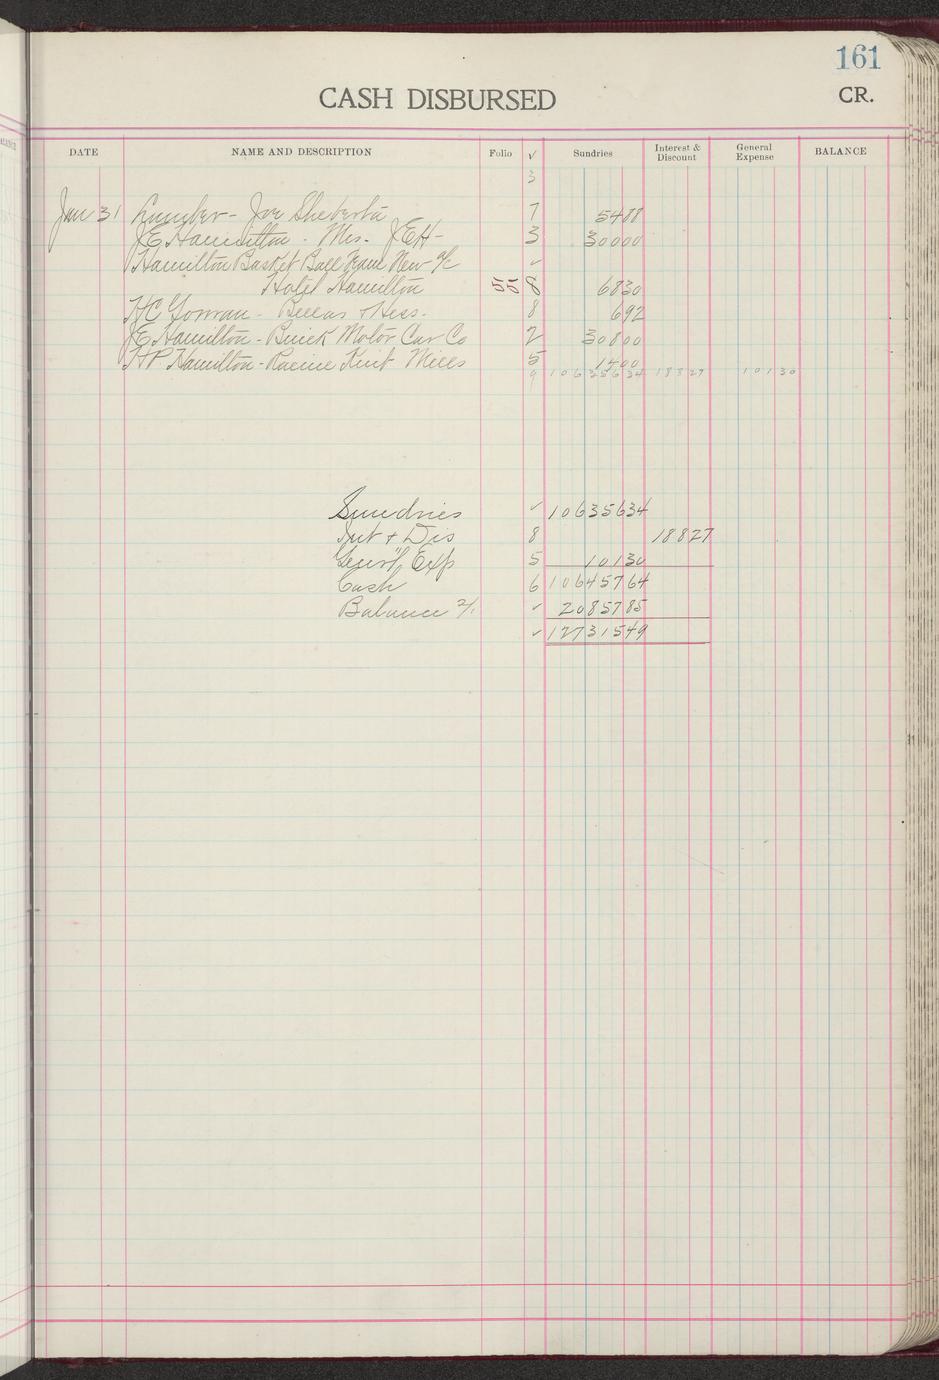 161
CASH DISBURSED
CR.
DATE NAME AND DESCRIPTION Folio ✓ Sundries Interest & Discount General Expense BALANCE
3
Jan 31 Lumber - Joe 7 5488
J E Hamilton - Mrs. J E H - 3 30000
Hamilton Basket Ball Team New a/c ✓
Hotel Hamilton 55 8 6830
H C Gorman - Bellas & Hess. 8 692
J E Hamilton - Buick Motor Car Co 2 30800
H P Hamilton - Racine Knit Mills 5 1400
9 10635634 18827 10130
Sundries ✓ 10635634
Int & Dis 8 18827
Gen'l Exp 5 10130
Cash 6 10645764
Balance 2/1 ✓ 2085785
✓ 12731549